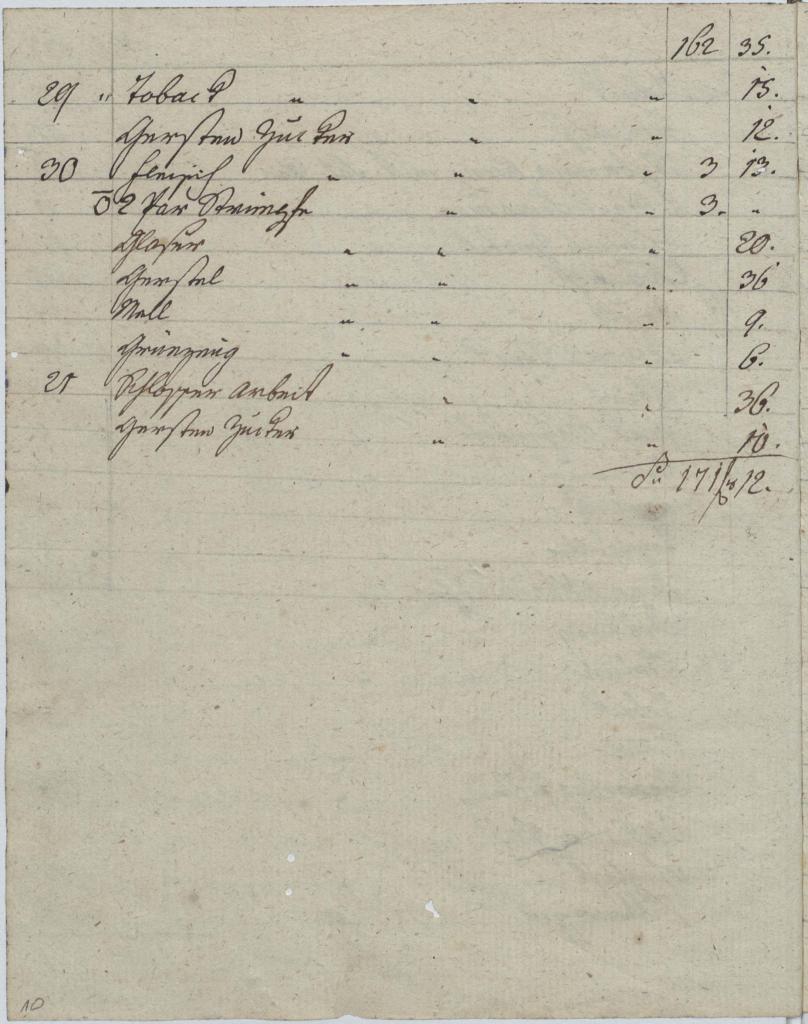 162 35.
29 " Toback " " " 15.
Gersten Zucker " " 12.
30 Fleisch " " " 3 13.
2 Par Strümpfe " " 3. "
Glaser " " " 20.
Gerstel " " " 36
Mell " " " 9.
Grünzeug " " " 6.
21 Schlosser Arbeit " " 36.
Gersten Zucker " " 10.
171 12.
10